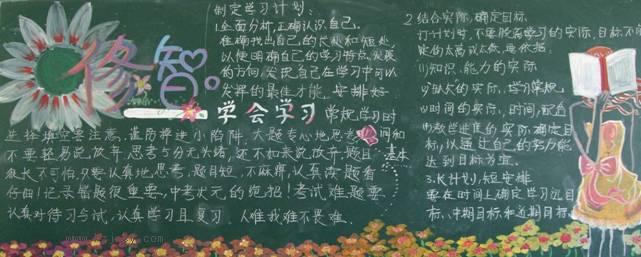 修智。
学会学习
制定学习计划:
1.全面分析,正确认识自己。
准确找出自己的长处和短处,
以便明确自己的学习特点、发展
的方向,发现自己在学习中可以
发挥的最佳才能。安排好
常规学习时
间和
基本
选择填空要注意,谨防掉进小陷阱,大题专心地思
不要轻易说放弃,思考5分无头绪,还不知来说放弃,题目
很长不可怕,只要认真地思考,题目短,不麻痹,认真读题看
仔细!记录错题很重要,中考状元的绝招!考试难题要
认真对待习与试,认真学习且复习 人难我难不畏难。
2.结合实际,确定目标。
订计划时,不要脱离学习的实际,目标不
定的太高或太低,要依据:
(1)知识、能力的实际
的实际,学习常规
(3)时间的实际,时间,配合
(4)教学进度的实际,确定目
标,以通过自己的努力能
达到目标为宜。
3.长计划,短安排
要在时间上确定学习远目
标、中期目标和近期目标。